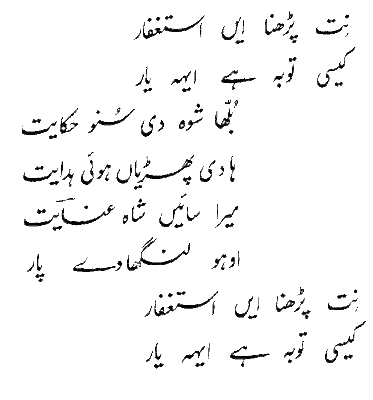 نِت پڑھنا ایں استغفار
کیسی توبہ ہے ایہہ یار
بُلّھا شوہ دی سُنو حکایت
ہادی پھڑیاں ہوئی ہدایت
میرا سائیں شاہ عنایت
اوہو لنگھادے پار
نِت پڑھنا ایں استغفار
کیسی توبہ ہے ایہہ یار